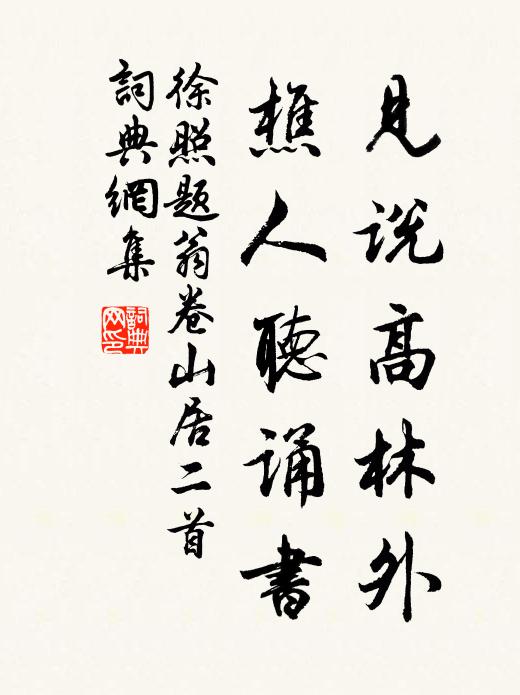 見説高林外
樵人聽誦書
徐照題翁卷山居二首
詞典網集
詞典網印